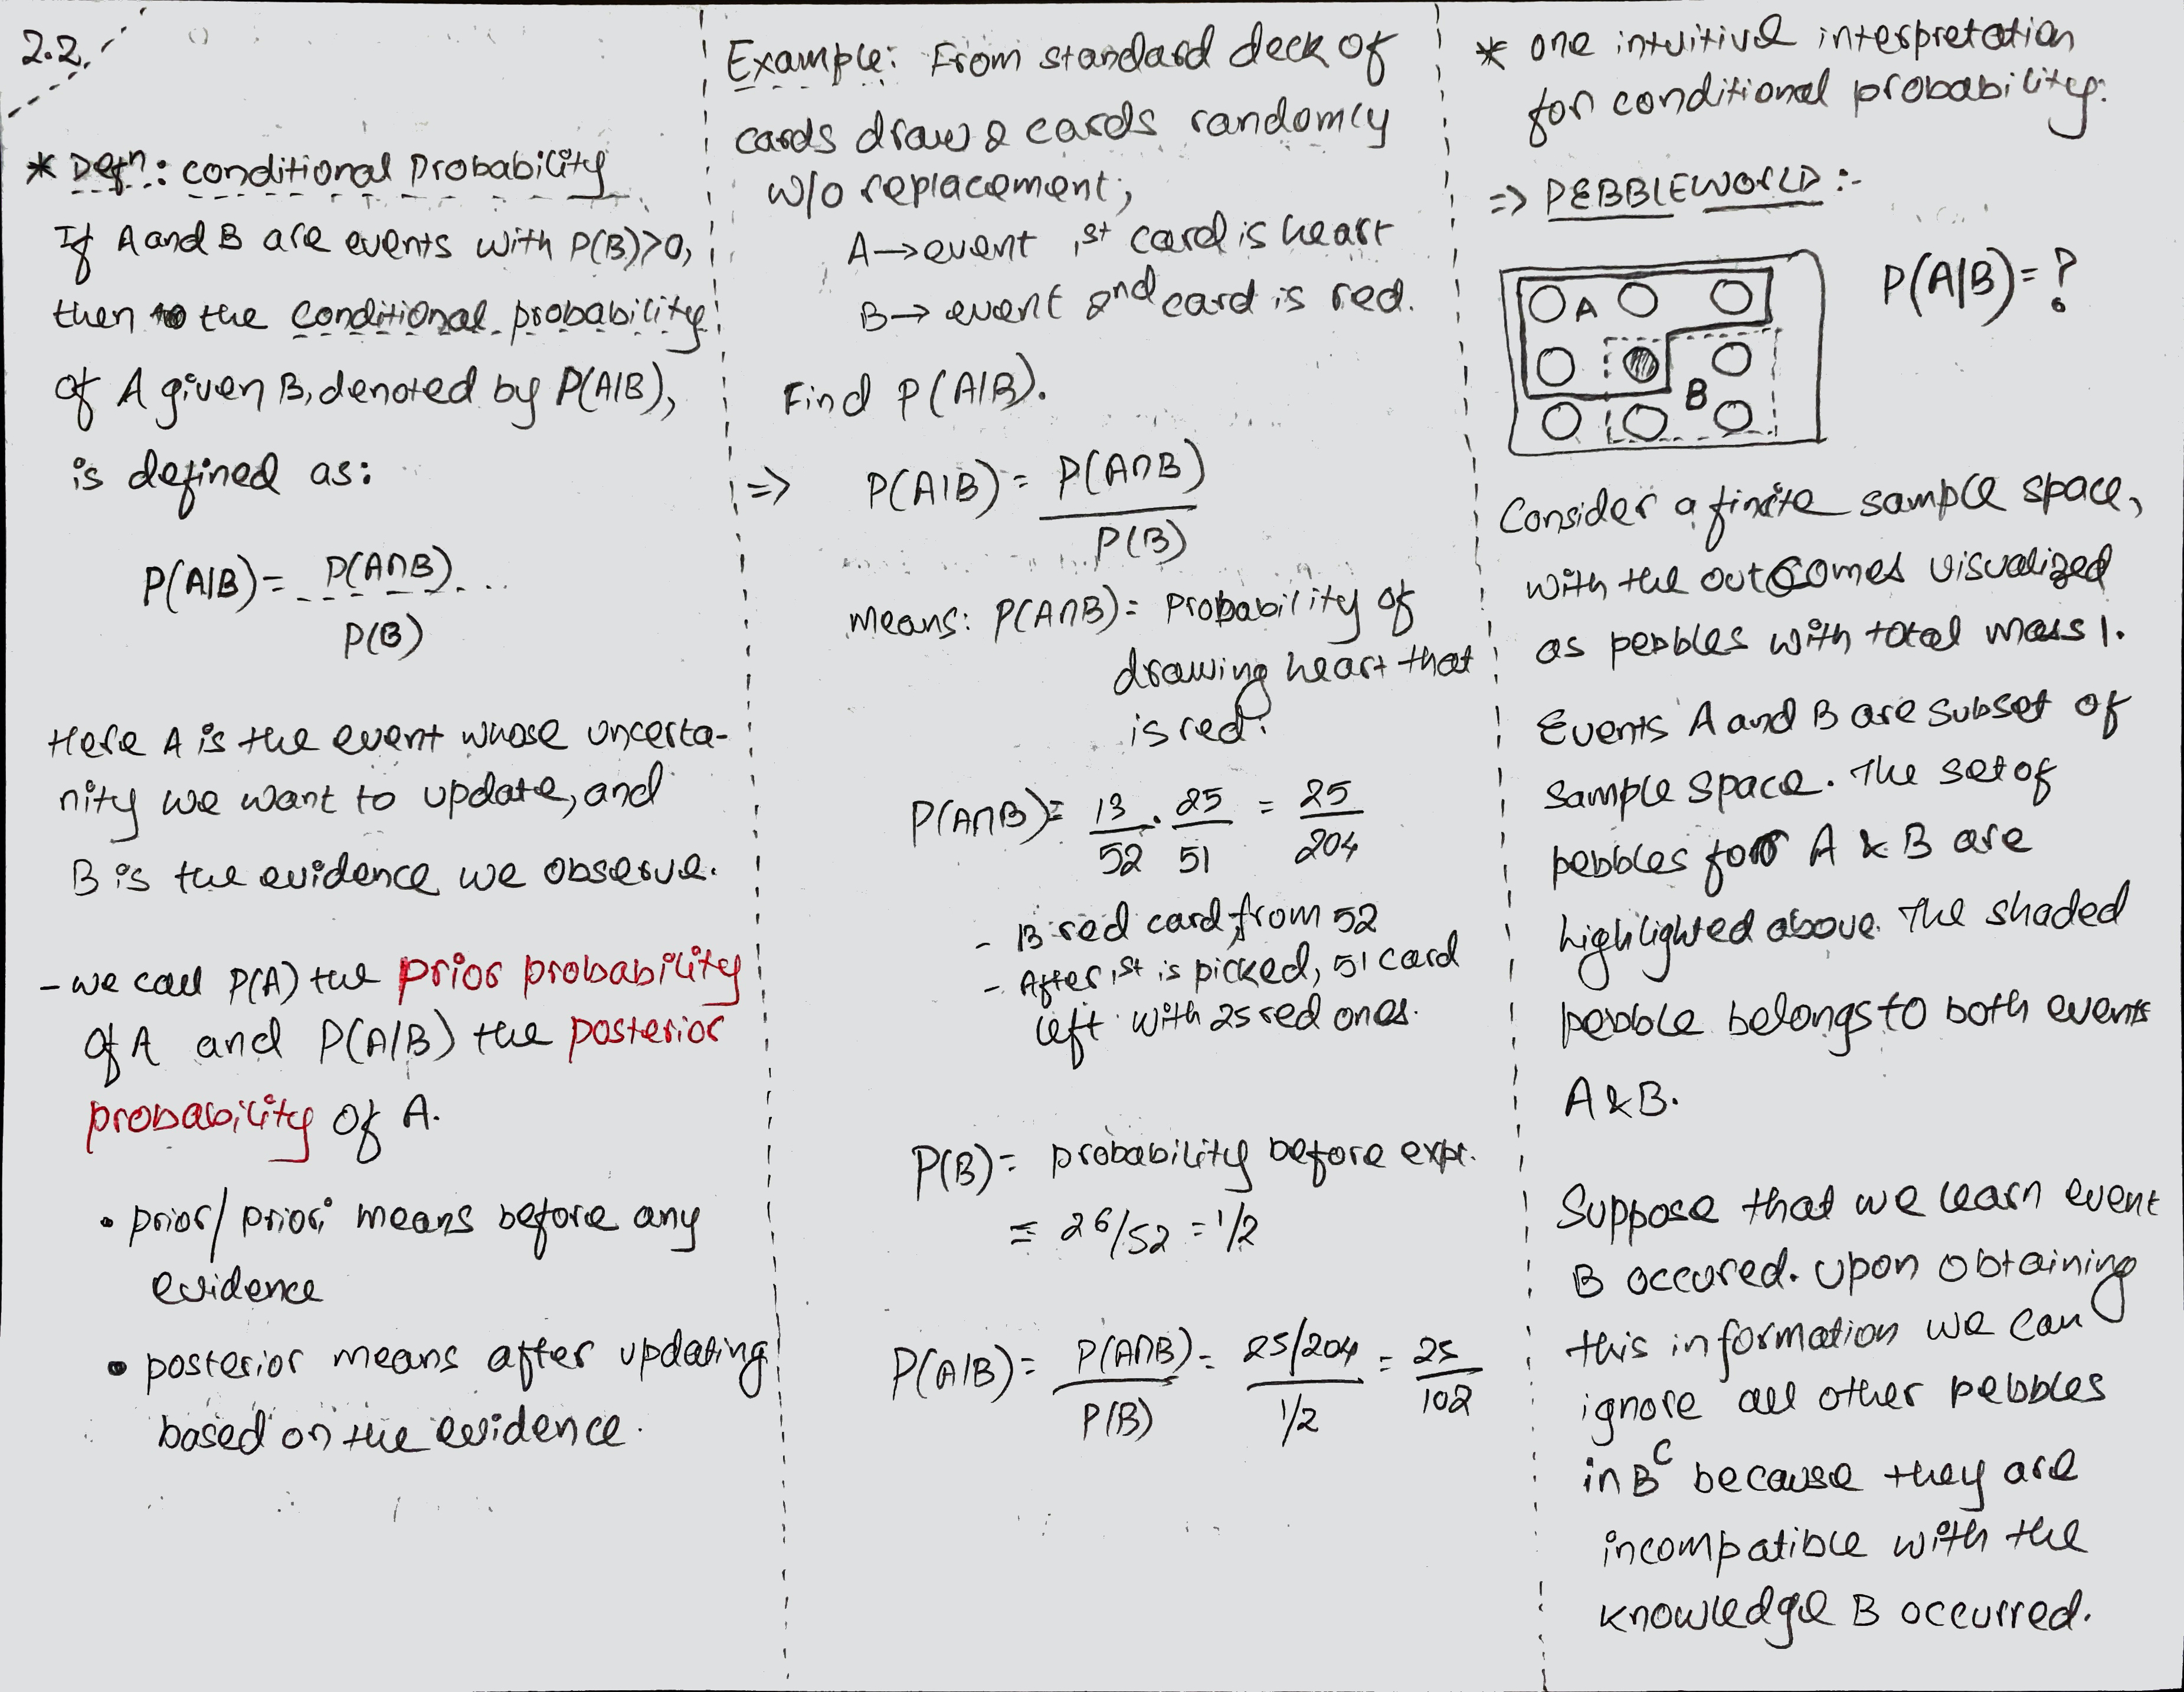 2.2.
* Defn: conditional Probability
If A and B are events with P(B)>0,
then to the conditional probability
of A given B, denoted by P(A|B),
is defined as:
P(A|B) = P(A∩B)
P(B)
Here A is the event whose uncerta-
nity we want to update, and
B is the evidence we observe.
- we call P(A) the prior probability
of A and P(A|B) the posterior
probability of A.
• prior/priori means before any
evidence
• posterior means after updating
based on the evidence.
Example: From standard deck of
cards draw 2 cards randomly
w/o replacement;
A→event 1st card is heart
B→ event 2nd card is red.
Find P(A|B).
=> P(A|B) = P(A∩B)
P(B)
means: P(A∩B) = Probability of
drawing heart that
is red.
P(A∩B) = 13/52 . 25/51 = 25/204
- 13 red card from 52
- After 1st is picked, 51 card
left with 25 red ones.
P(B) = probability before expr.
= 26/52 = 1/2
P(A|B) = P(A∩B)/P(B) = 25/204 / 1/2 = 25/102
* one intuitive interpretation
for conditional probability:
=> PEBBLEWORLD :-
P(A|B) = ?
A
B
Consider a finite sample space,
with the outcomes visualized
as pebbles with total mass 1.
Events A and B are subset of
sample space. The set of
pebbles for A & B are
highlighted above. The shaded
pebble belongs to both events
A & B.
Suppose that we learn event
B occured. Upon obtaining
this information we can
ignore all other pebbles
in B^C because they are
incompatible with the
knowledge B occurred.